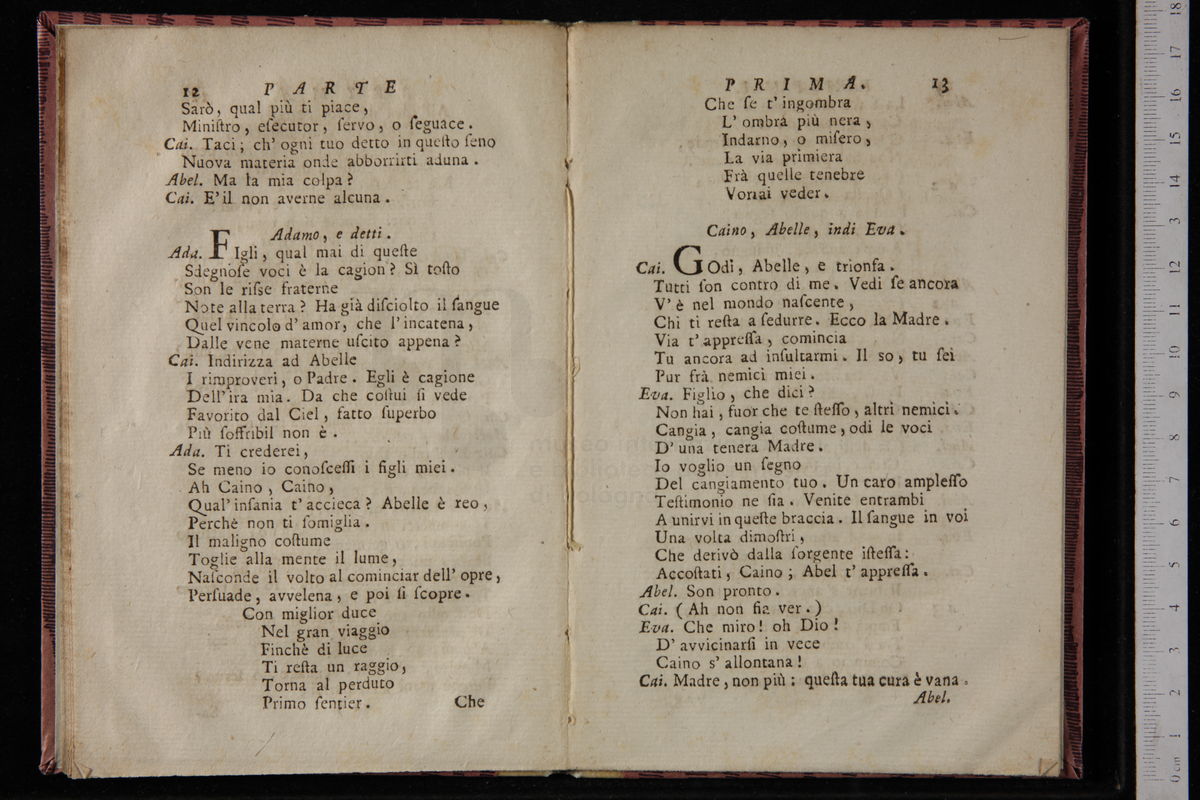 12 PARTE
Sarò, qual più ti piace,
Miniſtro, eſecutor, ſervo, o ſeguace.
Cai. Taci; ch' ogni tuo detto in queſto ſeno
Nuova materia onde abborrirti aduna.
Abel. Ma la mia colpa?
Cai. E' il non averne alcuna.
Adamo, e detti.
Ada. FIgli, qual mai di queſte
Sdegnoſe voci è la cagion? Sì toſto
Son le riſse fraterne
Note alla terra? Ha già diſciolto il ſangue
Quel vincolo d' amor, che l' incatena,
Dalle vene materne uſcito appena?
Cai. Indirizza ad Abelle
I rimproveri, o Padre. Egli è cagione
Dell' ira mia. Da che coſtui ſi vede
Favorito dal Ciel, fatto ſuperbo
Più ſoffribil non è.
Ada. Ti crederei,
Se meno io conoſceſſi i figli miei.
Ah Caino, Caino,
Qual' inſania t' accieca? Abelle è reo,
Perchè non ti ſomiglia.
Il maligno coſtume
Toglie alla mente il lume,
Naſconde il volto al cominciar dell' opre,
Perſuade, avvelena, e poi ſi ſcopre.
Con miglior duce
Nel gran viaggio
Finchè di luce
Ti reſta un raggio,
Torna al perduto
Primo ſentier.
Che
PRIMA. 13
Che ſe t' ingombra
L' ombra più nera,
Indarno, o miſero,
La via primiera
Frà quelle tenebre
Vorrai veder.
Caino, Abelle, indi Eva.
Cai. GOdi, Abelle, e trionfa.
Tutti ſon contro di me. Vedi ſe ancora
V' è nel mondo naſcente,
Chi ti reſta a ſedurre. Ecco la Madre.
Via t' appreſſa, comincia
Tu ancora ad inſultarmi. Il so, tu ſei
Pur frà nemici miei.
Eva. Figlio, che dici?
Non hai, fuor che te ſteſſo, altri nemici.
Cangia, cangia coſtume, odi le voci
D' una tenera Madre.
Io voglio un ſegno
Del cangiamento tuo. Un caro ampleſſo
Teſtimonio ne ſia. Venite entrambi
A unirvi in queſte braccia. Il ſangue in voi
Una volta dimoſtri,
Che derivò dalla ſorgente iſteſſa:
Accoſtati, Caino; Abel t' appreſſa.
Abel. Son pronto.
Cai. (Ah non fia ver.)
Eva. Che miro! oh Dio!
D' avvicinarſi in vece
Caino s' allontana!
Cai. Madre, non più: queſta tua cura è vana.
Abel.